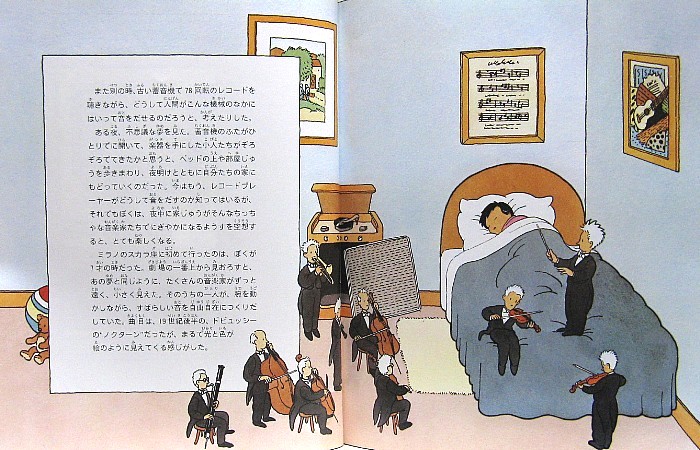 また別の時、古い蓄音機で78回転のレコードを
聴きながら、どうして人間がこんな機械のなかに
はいって音をだせるのだろうと、考えたりした。
ある夜、不思議な夢を見た。蓄音機のふたがひ
とりでに開いて、楽器を手にした小人たちがぞろ
ぞろでてきたかと思うと、ベッドの上や部屋じゅ
うを歩きまわり、夜明けとともに自分たちの家に
もどっていくのだった。今はもう、レコードプレ
ーヤーがどうして音をだすのか知ってはいるが、
それでもぼくは、夜中に家じゅうがそんなちっち
ゃな音楽家たちでにぎやかになるようすを空想す
ると、とても楽しくなる。
ミラノのスカラ座に初めて行ったのは、ぼくが
7才の時だった。劇場の一番上から見おろすと、
あの夢と同じように、たくさんの音楽家がずっと
遠く、小さく見えた。そのうちの一人が、腕を動
かしながら、すばらしい音を自由自在につくりだ
していた。曲目は、19世紀後半の、ドビュッシー
の“ノクターン”だったが、まるで光と色が
絵のように見えてくる感じがした。